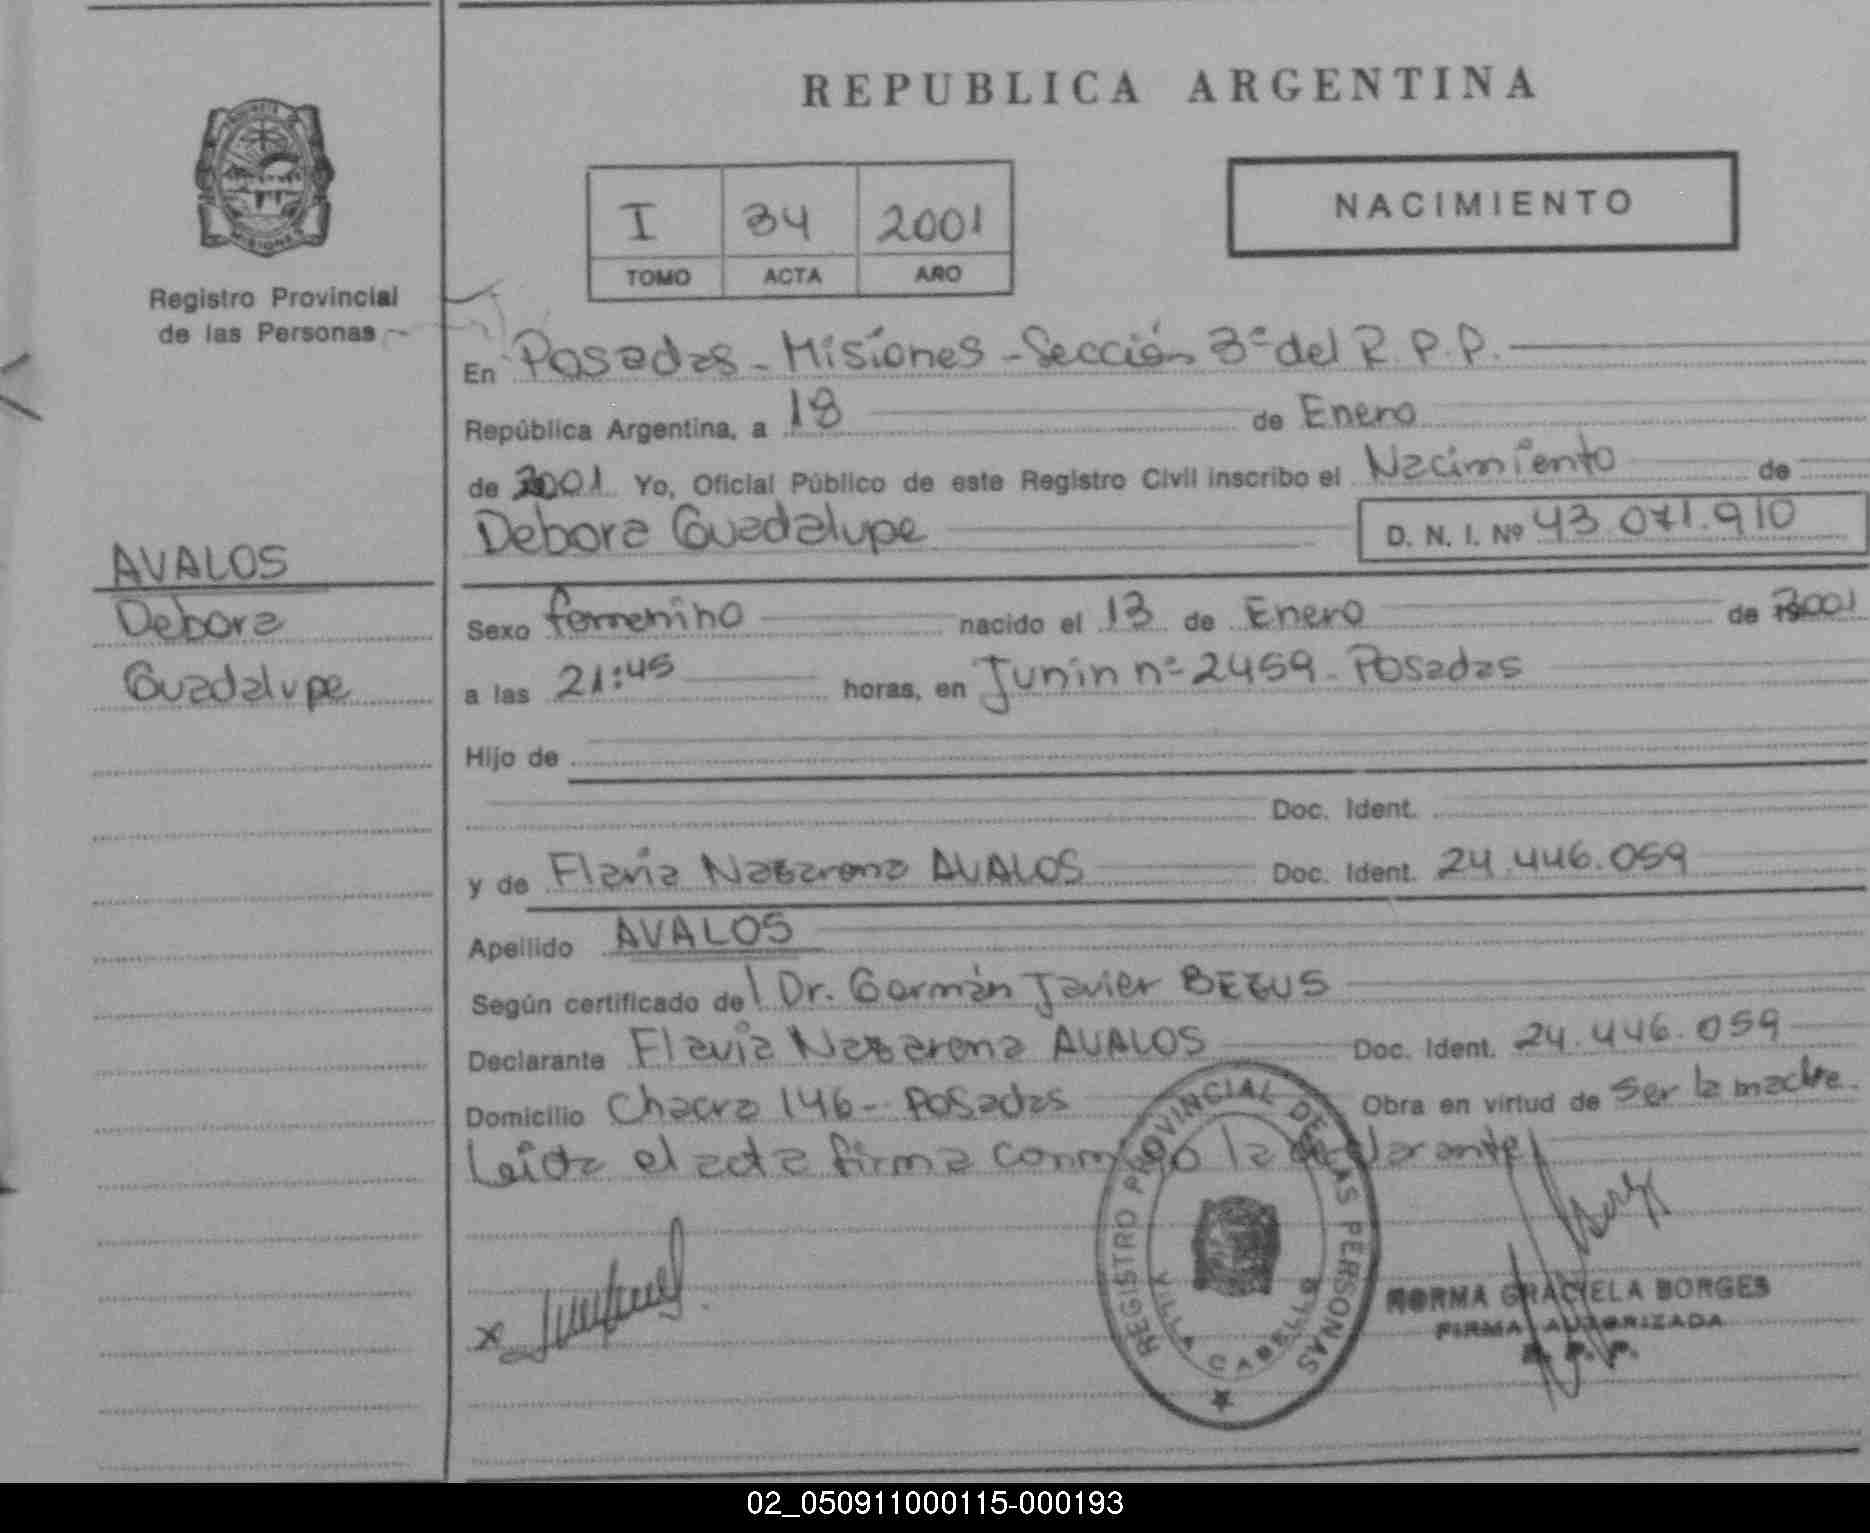 REPUBLICA ARGENTINA
MISIONES
Registro Provincial
de las Personas
I 34 2001
TOMO ACTA AÑO
NACIMIENTO
En Posadas - Misiones - Sección 3ª del R.P.P.
República Argentina, a 18 de Enero
de 2001 Yo, Oficial Público de este Registro Civil inscribo el Nacimiento de
Debora Guadalupe D. N. I. Nº 43.071.910
AVALOS
Debora
Guadalupe
Sexo femenino nacido el 13 de Enero de 2001
a las 21:45 horas, en Junin nº 2459 - Posadas
Hijo de
Doc. Ident.
y de Flavia Nazarena AVALOS Doc. Ident. 24.446.059
Apellido AVALOS
Según certificado del Dr. Germán Javier BEZUS
Declarante Flavia Nazarena AVALOS Doc. Ident. 24.446.059
Domicilio Chacra 146 - Posadas Obra en virtud de ser la madre.
Leida el acta firma conmigo la declarante
REGISTRO PROVINCIAL DE LAS PERSONAS
VILLA CABELLO
NORMA GRACIELA BORGES
FIRMA AUTORIZADA
R. P. P.
02_050911000115-000193